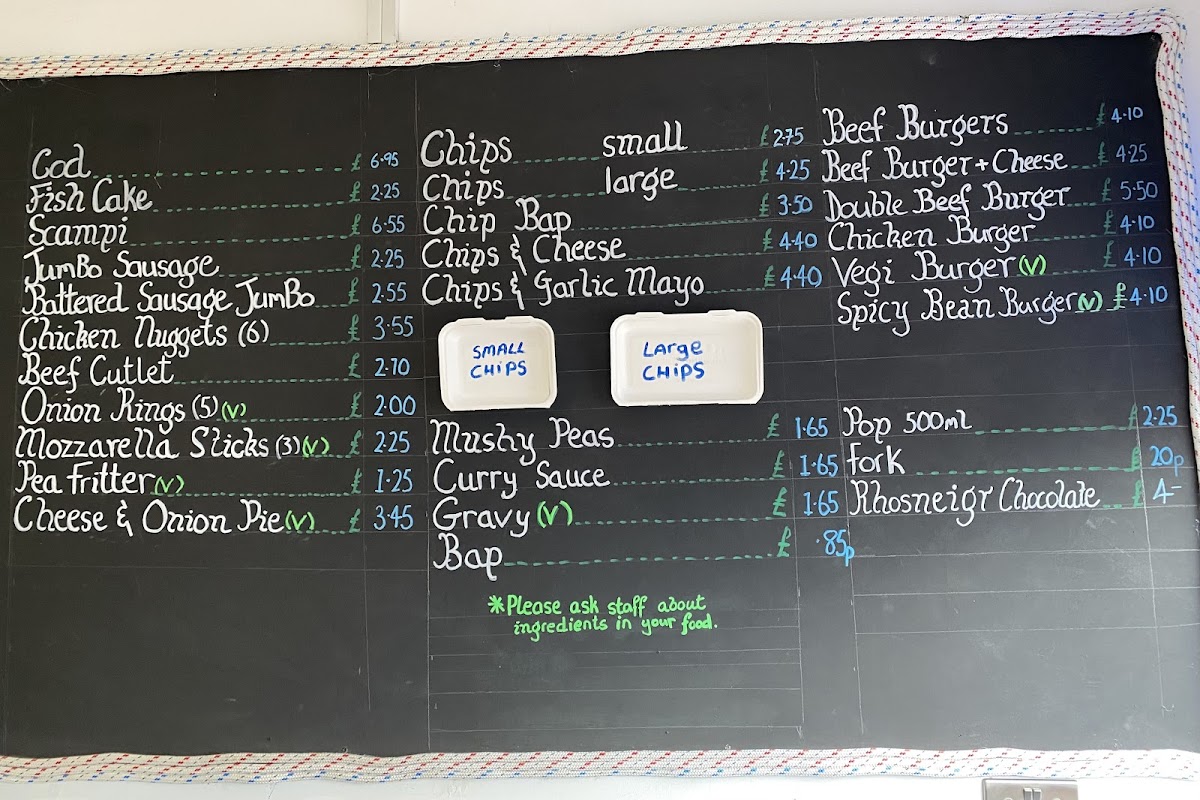 Cod £ 6.95
Fish Cake £ 2.25
Scampi £ 6.55
JumBo Sausage £ 2.25
Battered Sausage JumBo £ 2.55
Chicken Nuggets (6) £ 3.55
Beef Cutlet £ 2.70
Onion Rings (5) (V) £ 2.00
Mozzarella Sticks (3) (V) £ 2.25
Pea Fritter (V) £ 1.25
Cheese & Onion Pie (V) £ 3.45
Chips small £ 2.75
Chips large £ 4.25
Chip Bap £ 3.50
Chips & Cheese £ 4.40
Chips & Garlic Mayo £ 4.40
SMALL
CHIPS
LARge
CHiPS
Mushy Peas £ 1.65
Curry Sauce £ 1.65
Gravy (V) £ 1.65
Bap £ .85p
*Please ask staff about
ingredients in your food.
Beef Burgers £ 4.10
Beef Burger + Cheese £ 4.25
Double Beef Burger £ 5.50
Chicken Burger £ 4.10
Vegi Burger (V) £ 4.10
Spicy Bean Burger (V) £4.10
Pop 500ml £ 2.25
fork £ 20p
Rhosneigr Chocolate £ 4-